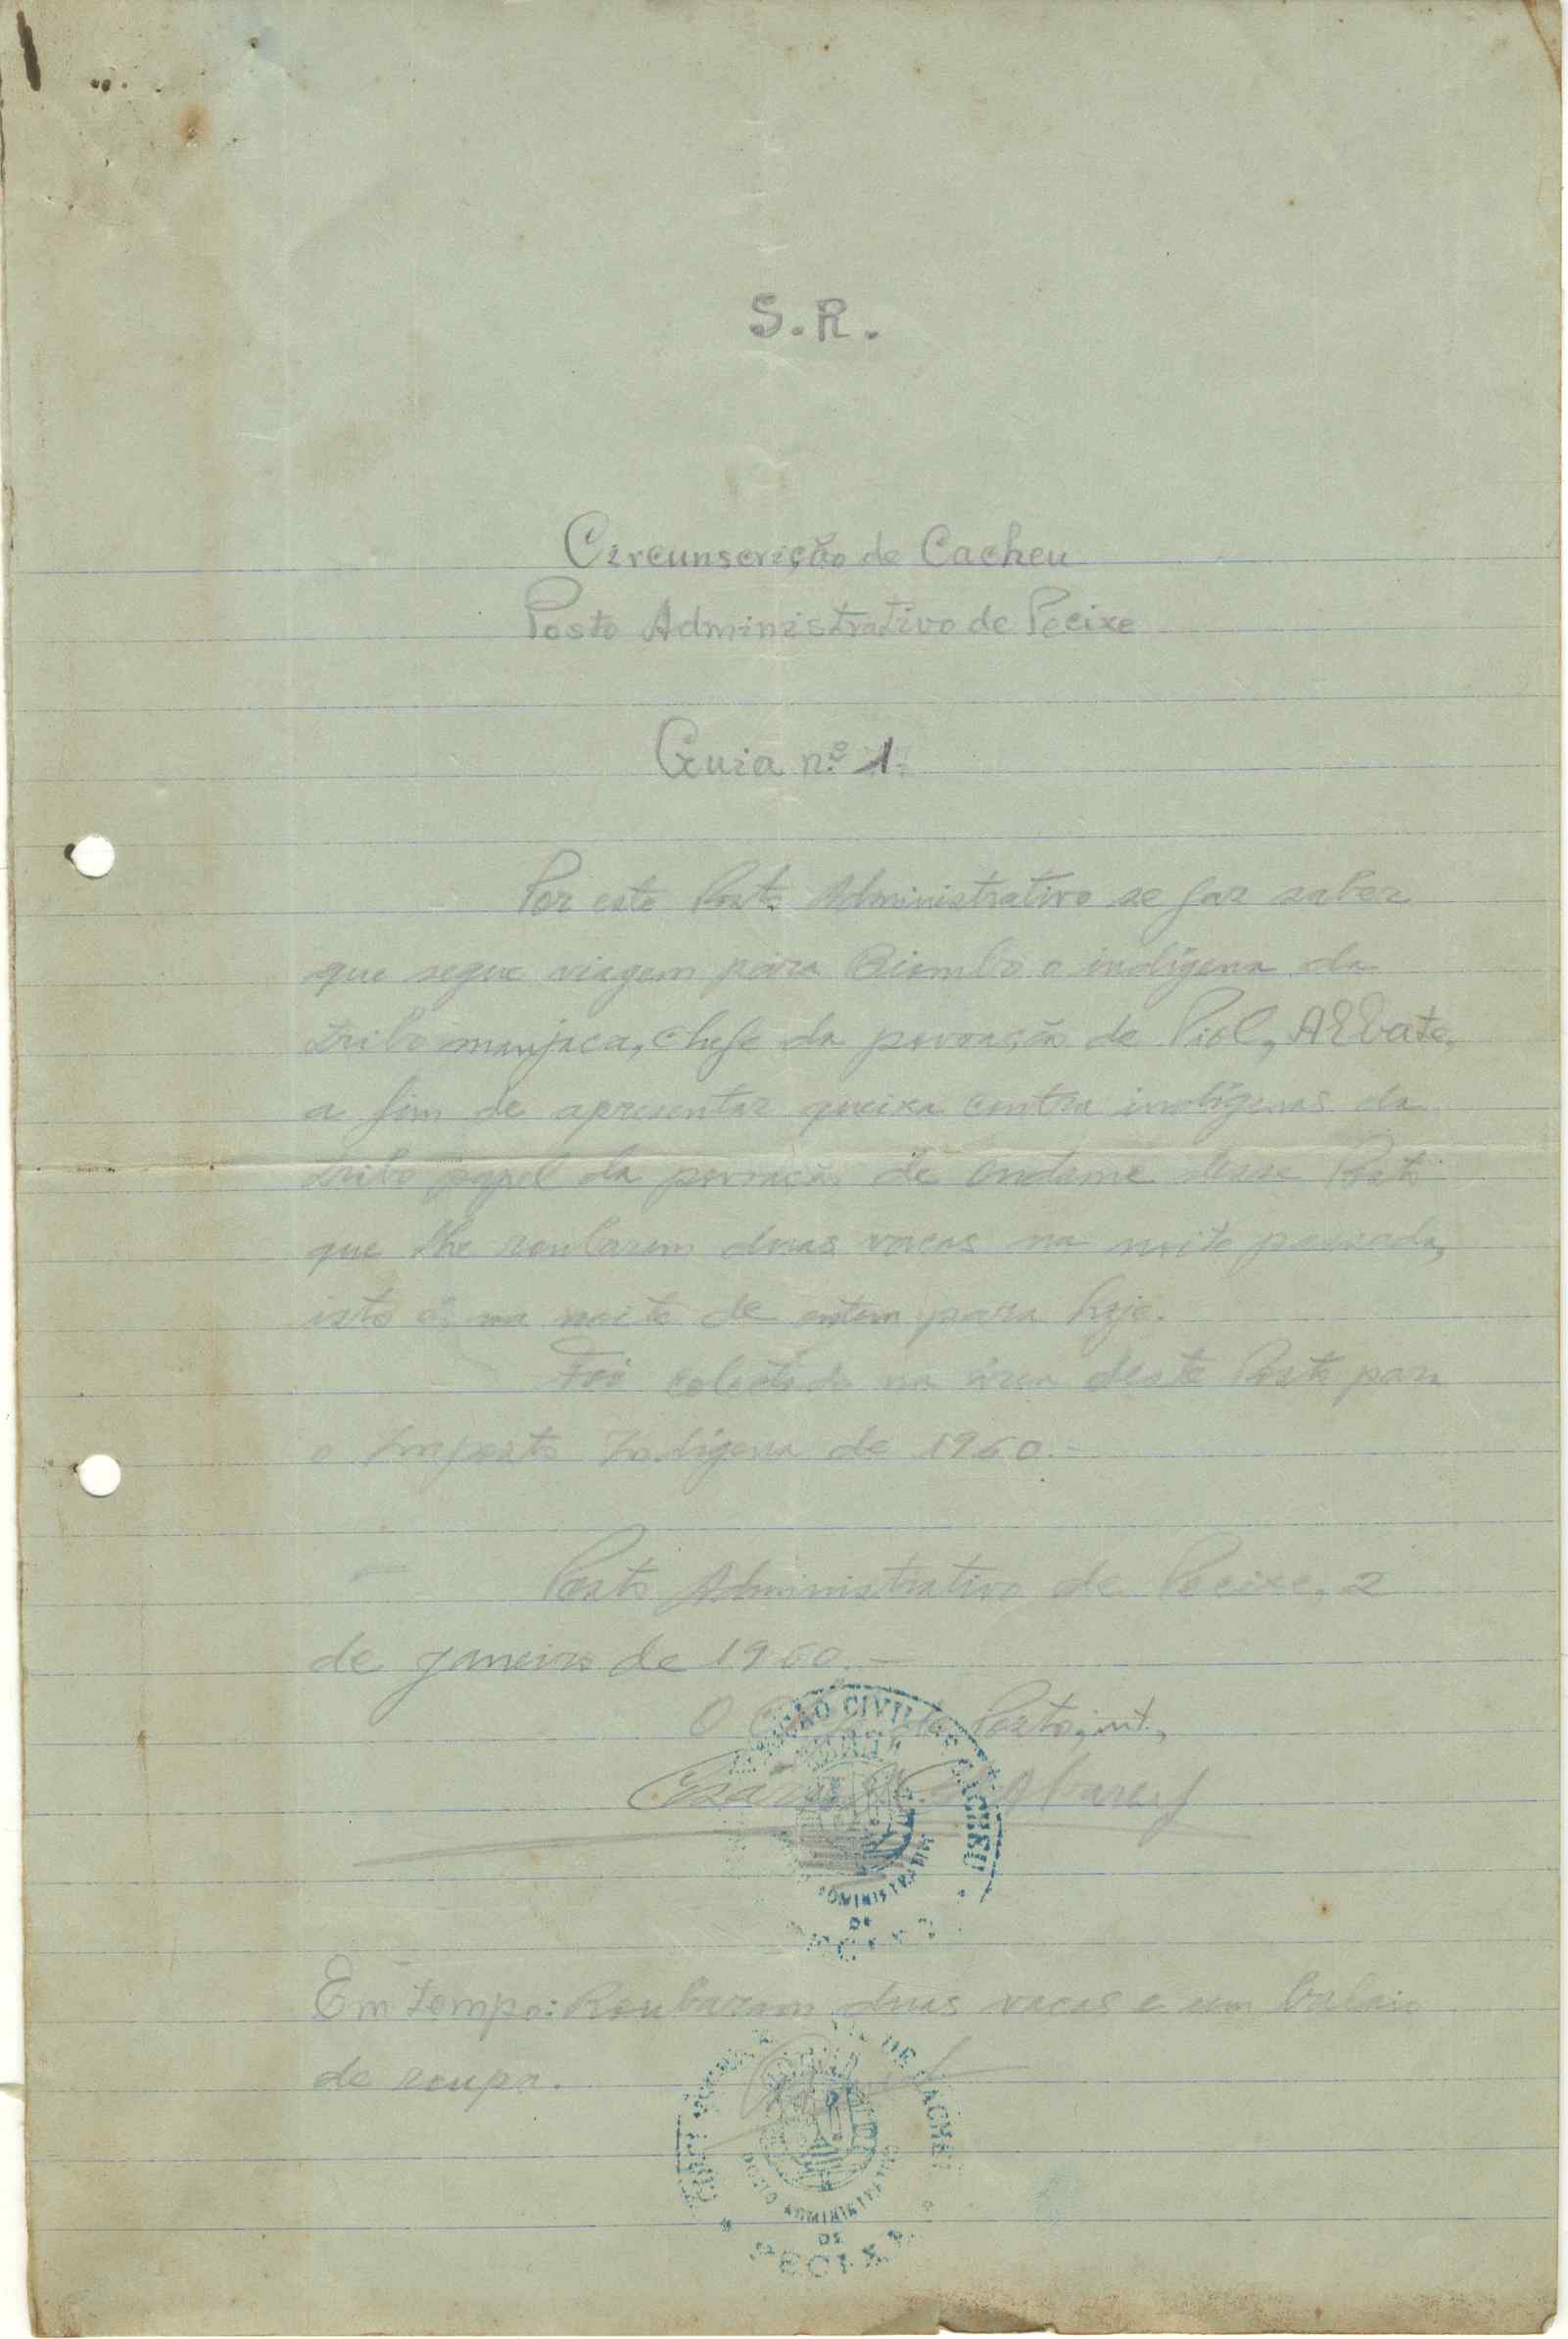 S.R.
Circunscrição de Cacheu
Posto Administrativo de Pecixe
Guia n.º 1
Por este Posto Administrativo se faz saber
que segue viagem para Biombo o indígena da
tribo manjaca, chefe da povoação de Piol,
a fim de apresentar queixa contra indígenas da
tribo papel da povoação de Ondame desse Posto
que lhe roubaram duas vacas na noite passada,
isto é, na noite de ontem para hoje.
Foi colectado na área deste Posto para
o Imposto Indígena de 1960.-
Posto Administrativo de Pecixe, 2
de janeiro de 1960.-
O Chefe do Posto, int.,
Em tempo: Roubaram duas vacas e um balaio
de roupa.
DE CACHEU
POSTO ADMINISTRATIVO
DE
PECIXE